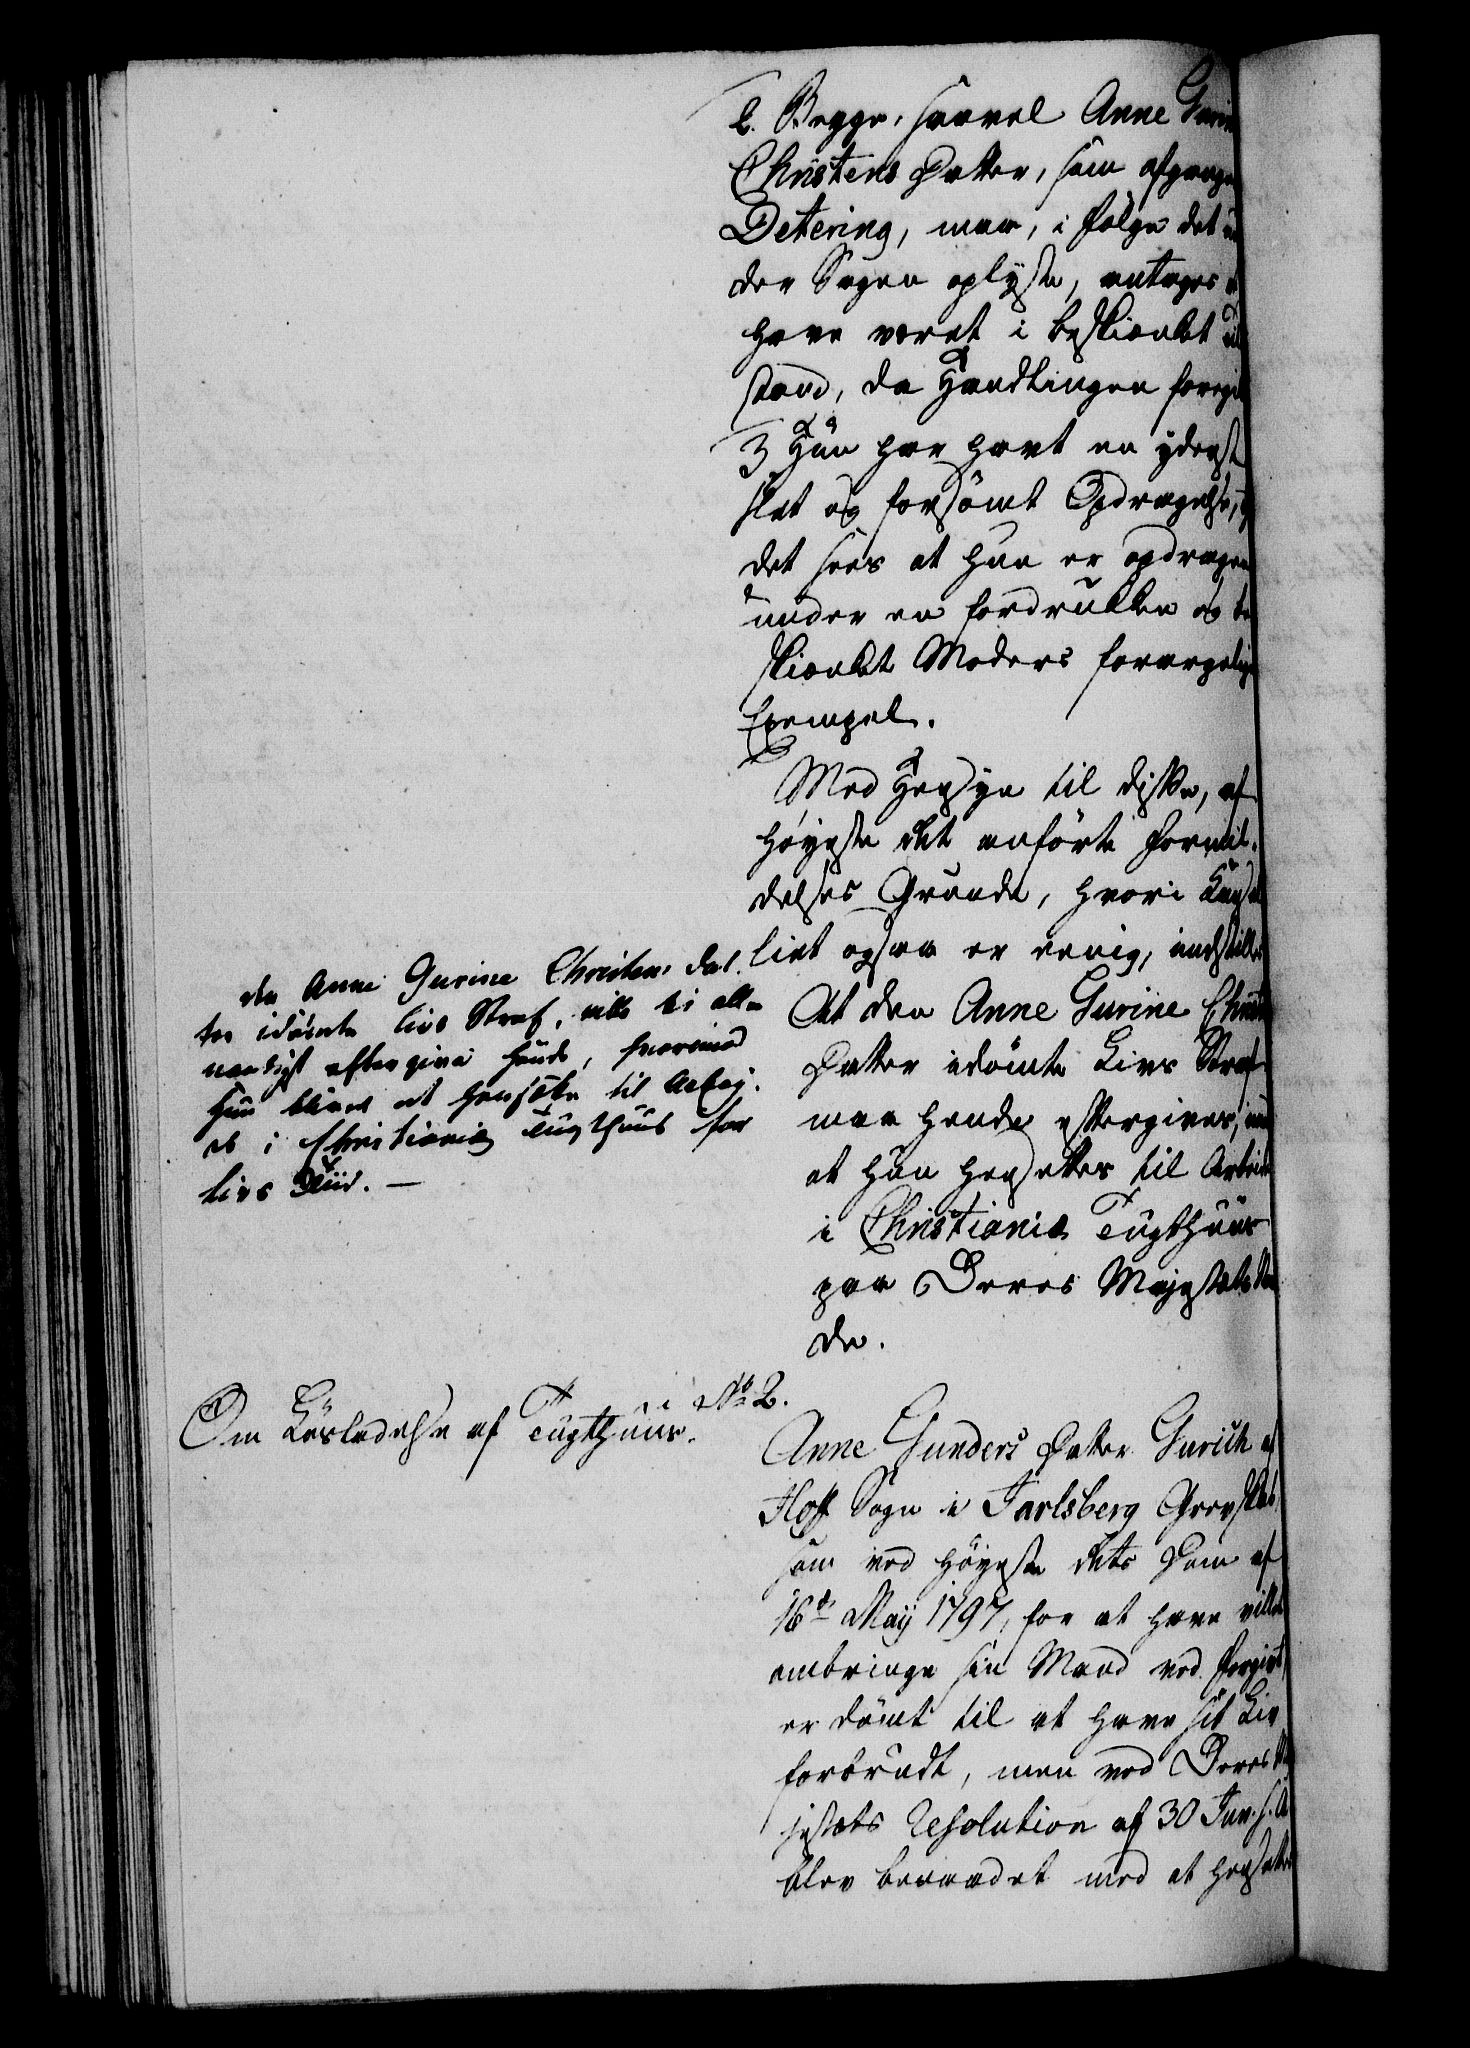 2. Begge, saavel Anne Gurine
Christens Datter, som afgangne
Detering, maa, i følge det un
der Sagen oplyste, antages at
have været i beskienket Til
stand, da Handlingen foregik
3. Hun har havt en yderst
slet og forsømt Opdragelse,
det sees at hun er opdragen
under en fordrukken og be
skienket Moders forargelige
Exempel.
Med Hensyn til disse, af
Høyeste Ret anførte Formil¬
delses Grunde, hvori Cancel
liet ogsaa er eenig, indstilles
At den Anne Gurine Christens
Datter idømte Livs Straf
maa hende eftergives, mod
at hun hensættes til Arbeide
i Christiania Tugthuus
paa Deres Majestæts Naa
de.
Den Anne Gurine Christens Dat¬
ter idømte Livs Straf, ville Vi aller
naadigst eftergive hende, hvorimod
hun bliver at hensætte til Arbej¬
de i Christiania Tugthuus for
Livs Tiid. —
Om Løsladelse af Tugthuus.
No 2.
Anne Gunders Datter Gurich af
Hoff Sogn i Jarlsberg Grevskab,
som ved Høyeste Rets Dom af
16de Maij 1797, for at have villet
ombringe sin Mand ved Forgivt
er dømt til at have sit Liv
forbrudt, men ved Deres Ma
jestæts Resolution af 30 Jun. s. A.
blev benaadet med at hensættes